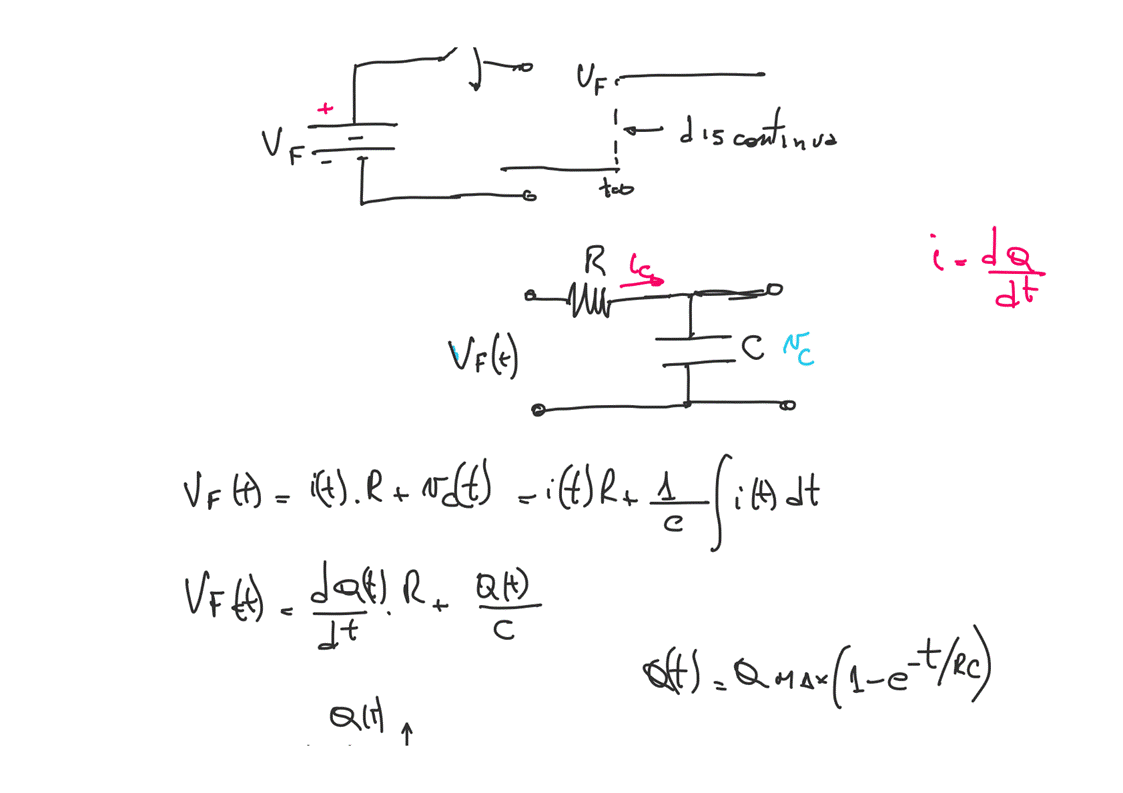 V_F + - -
V_F
discontinua
t=0
R i_c
i = dQ/dt
V_F(t)
C v_c
V_F(t) = i(t).R + v_c(t) = i(t)R + 1/C ∫ i(t) dt
V_F(t) = dQ(t)/dt . R + Q(t)/C
Q(t) = Q MAX (1-e^-t/RC)
Q(t) ↑